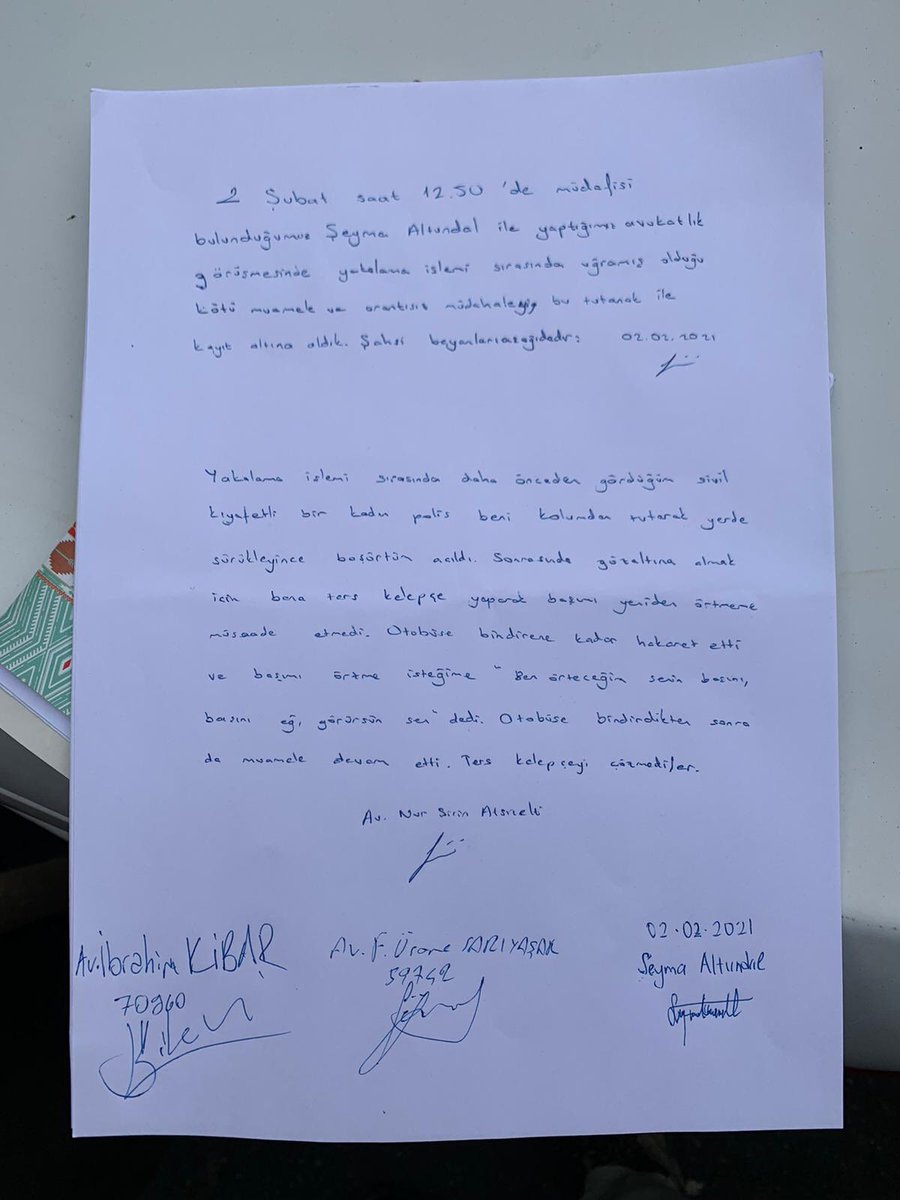 2 Şubat saat 12.50 'de müdafisi
bulunduğumuz Şeyma Altundal ile yaptığımız avukatlık
görüşmesinde yakalama işlemi sırasında uğramış olduğu
kötü muamele ve orantısız müdahaleyi bu tutanak ile
kayıt altına aldık. Şahsi beyanları aşağıdadır: 02.02.2021
Yakalama işlemi sırasında daha önceden gördüğüm sivil
kıyafetli bir kadın polis beni kolumdan tutarak yerde
sürükleyince başörtüm açıldı. Sonrasında gözaltına almak
için bana ters kelepçe yaparak başımı yeniden örtmeme
müsaade etmedi. Otobüse bindirene kadar hakaret etti
ve başımı örtme isteğime "Ben örteceğim senin başını,
başını eğ, görürsün sen" dedi. Otobüse bindirdikten sonra
da muamele devam etti. Ters kelepçeyi çözmediler.
Av. Nur Sirin
Av. İbrahim KİBAR
70960
Av. F. SARIYAŞAR
59742
02.02.2021
Şeyma Altundal